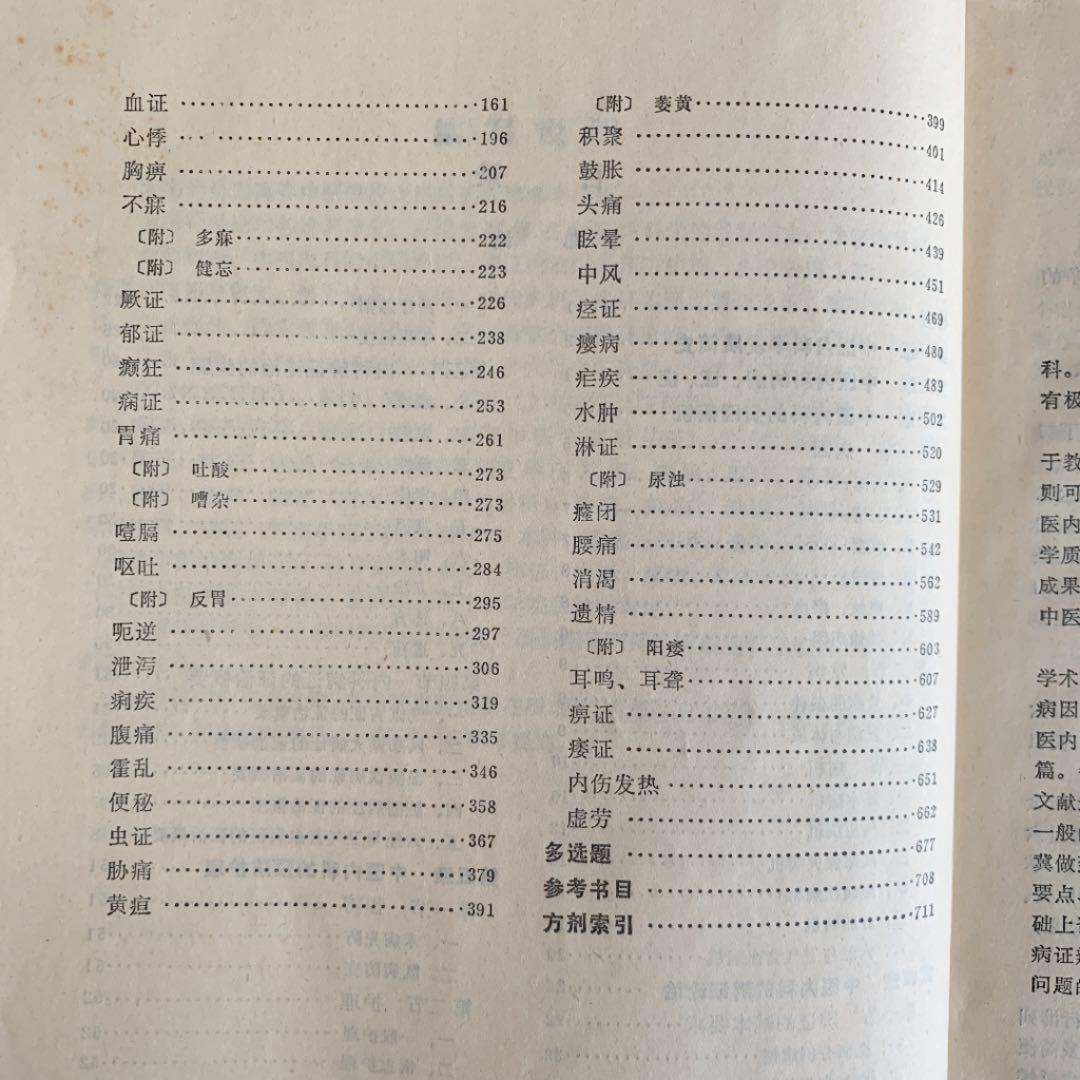 血证 161
心悸 196
胸痹 207
不寐 216
〔附〕 多寐 222
〔附〕 健忘 223
厥证 226
郁证 238
癫狂 246
痫证 253
胃痛 261
〔附〕 吐酸 273
〔附〕 嘈杂 273
噎膈 275
呕吐 284
〔附〕 反胃 295
呃逆 297
泄泻 306
痢疾 319
腹痛 335
霍乱 346
便秘 358
虫证 367
胁痛 379
黄疸 391
〔附〕 萎黄 399
积聚 401
鼓胀 414
头痛 426
眩晕 439
中风 451
痉证 469
瘿病 480
疟疾 489
水肿 502
淋证 520
〔附〕 尿浊 529
癃闭 531
腰痛 542
消渴 562
遗精 589
〔附〕 阳痿 603
耳鸣、耳聋 607
痹证 627
痿证 638
内伤发热 651
虚劳 662
多选题 677
参考书目 708
方剂索引 711
科。
有极
于教
则可
医内
学质
成果
中医
学术
病因
医内
篇。
文献
一般
冀做
要点
础上
病证
问题的